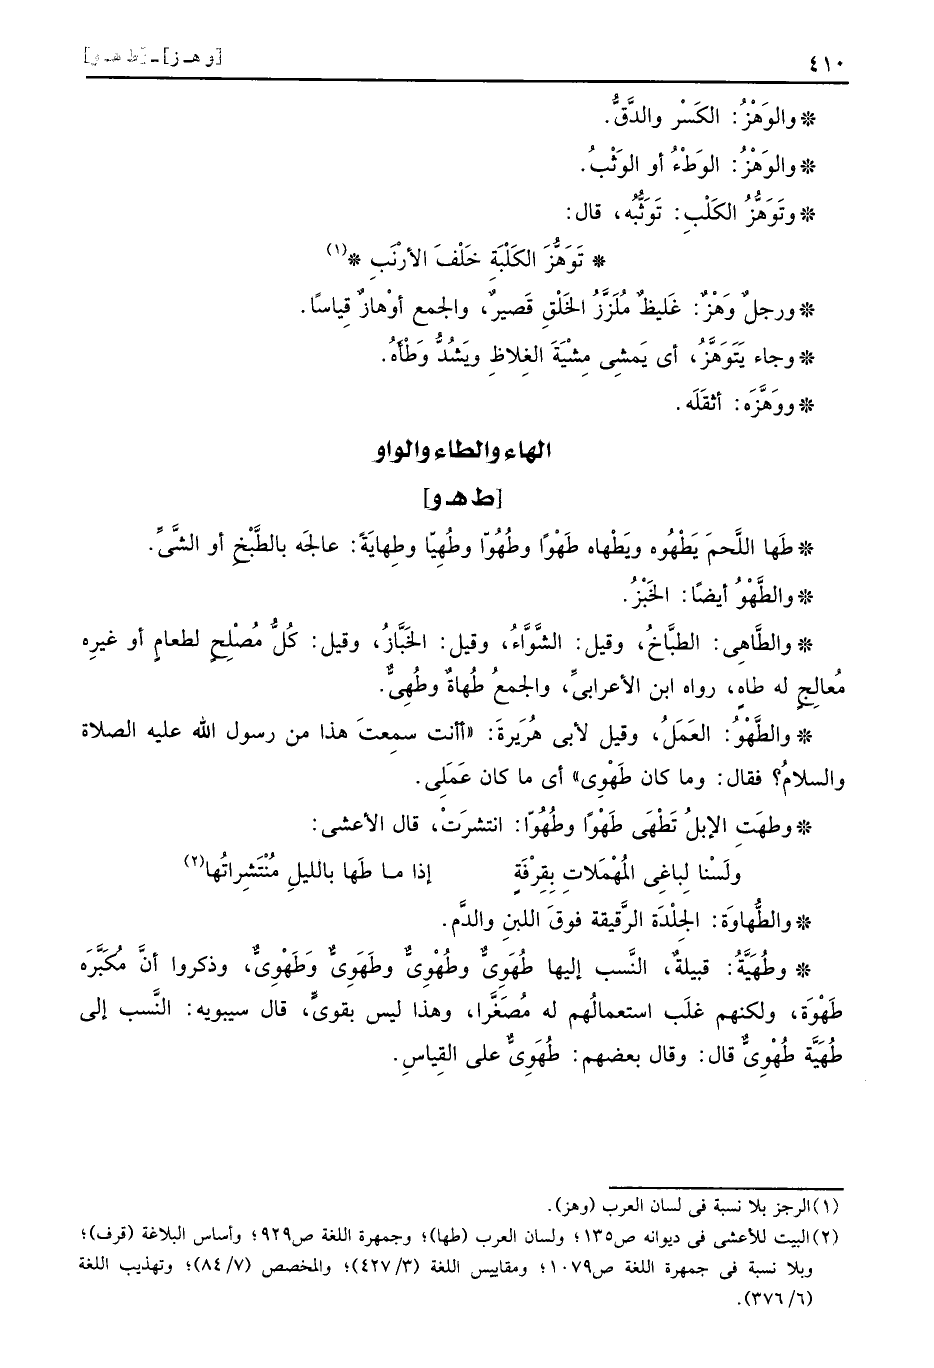 ٤١٠ [و هـ ز] ـ [ط هـ و]
* والوَهْزُ: الكَسْر والدَّقُّ.
* والوَهْزُ: الوَطْءُ أو الوَثْبُ.
* وتَوَهُّزُ الكَلْبِ: تَوَثُّبُه، قال:
* تَوَهُّزَ الكَلْبَةِ خَلْفَ الأرْنَبِ *(١)
* ورجلٌ وَهْزٌ: غَليظٌ مُلَزَّزُ الخَلْقِ قَصيرٌ، والجمع أوْهازٌ قِياسًا.
* وجاء يَتَوَهَّزُ، أى يَمشِى مِشْيَةَ الغِلاظِ ويَشُدُّ وَطْأَهُ.
* ووَهَّزَه: أثقَلَه.
الهاء والطاء والواو
[ط هـ و]
* طَها اللَّحمَ يَطْهُوه ويَطْهاه طَهْوًا وطُهُوّا وطُهِيّا وطِهايَةً: عالجَه بالطَّبْخِ أو الشَّىِّ.
* والطَّهْوُ أيضًا: الخَبْزُ.
* والطَّاهِى: الطبَّاخُ، وقيل: الشَّوَّاءُ، وقيل: الخَبَّازُ، وقيل: كُلُّ مُصْلِحٍ لطعامٍ أو غيرِه
مُعالِجٍ له طاهٍ، رواه ابن الأعرابىِّ، والجمعُ طُهاةٌ وطُهِىٌّ.
* والطَّهْوُ: العَمَلُ، وقيل لأبى هُرَيرةَ: «أأنت سمِعتَ هذا من رسول الله عليه الصلاة
والسلامُ؟ فقال: وما كان طَهْوِى» أى ما كان عَمَلِى.
* وطهَتِ الإبلُ تَطْهَى طَهْوًا وطُهُوّا: انتشرَتْ، قال الأعشى:
ولَسْنا لِباغِى المُهْمَلاتِ بِقِرْفَةٍ إذا مـا طَها بالليلِ مُنْتَشِراتُها(٢)
* والطُّهاوَة: الجِلْدَة الرَّقيقة فوقَ اللبنِ والدَّمِ.
* وطُهَيَّةُ: قبيلةٌ، النَّسب إليها طُهَوِىٌّ وطُهْوِىٌّ وطَهَوِىٌّ وَطَهْوِىٌّ، وذكروا أنَّ مُكَبَّرَه
طَهْوَة، ولكنهم غلَب استعمالُهم له مُصَغَّرا، وهذا ليس بقوىٍّ، قال سيبويه: النَّسب إلى
طُهَيَّة طُهْوِىٌّ قال: وقال بعضهم: طُهَوِىٌّ على القِياسِ.
(١) الرجز بلا نسبة فى لسان العرب (وهز).
(٢) البيت للأعشى فى ديوانه ص١٣٥؛ ولسان العرب (طها)؛ وجمهرة اللغة ص٩٢٩؛ وأساس البلاغة (قرف)؛
وبلا نسبة فى جمهرة اللغة ص١٠٧٩؛ ومقاييس اللغة (٤٢٧/٣)؛ والمخصص (٨٤/٧)؛ وتهذيب اللغة
(٣٧٦/٦).